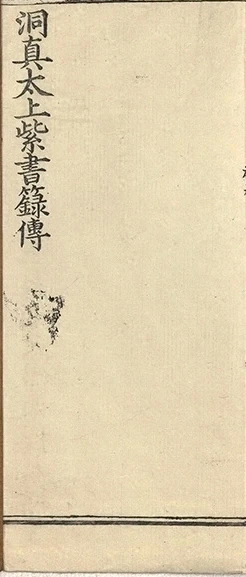 洞真太上紫書籙傳